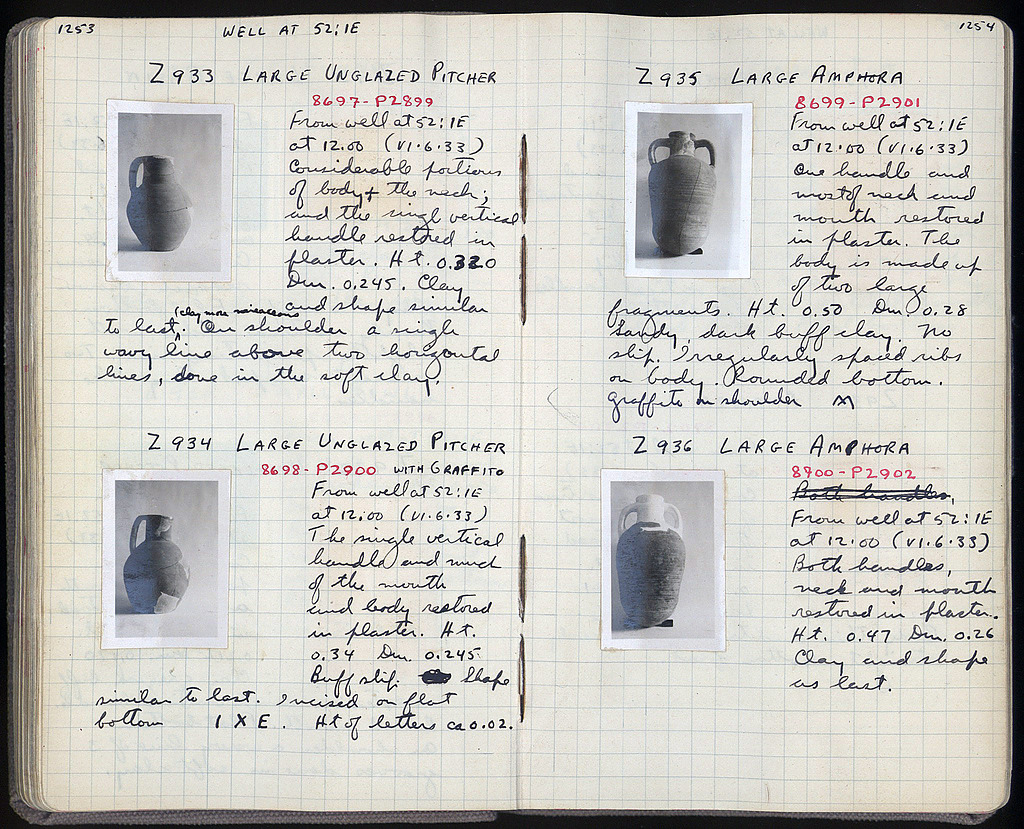 1253
WELL AT 52:1E
Z 933 LARGE UNGLAZED PITCHER
8697-P2899
From well at 52:1E
at 12.00 (VI.6.33)
Considerable portions
of body + the neck;
and the singl vertical
handle restored in
plaster. Ht. 0.320
Dm. 0.245. Clay
and shape similar
(clay more micaceous
to last). On shoulder a single
wavy line above two horizontal
lines, done in the soft clay.
Z 934 LARGE UNGLAZED PITCHER
8698-P2900 WITH GRAFFITO
From well at 52:1E
at 12.00 (VI.6.33)
The single vertical
handle and much
of the mouth
and body restored
in plaster. Ht.
0.34 Dm. 0.245.
Buff slip. Shape
similar to last. Incised on flat
bottom I X E. Ht of letters ca 0.02.
1254
Z 935 LARGE AMPHORA
8699-P2901
From well at 52:1E
at 12.00 (VI.6.33)
One handle and
most of neck and
mouth restored
in plaster. The
body is made up
of two large
fragments. Ht. 0.50 Dm. 0.28
Sandy, dark buff clay. No
slip. Irregularly spaced ribs
on body. Rounded bottom.
Graffito on shoulder
Z 936 LARGE AMPHORA
8700-P2902
Both handles,
From well at 52:1E
at 12.00 (VI.6.33)
Both handles,
neck and mouth
restored in plaster.
Ht. 0.47 Dm. 0.26
Clay and shape
as last.